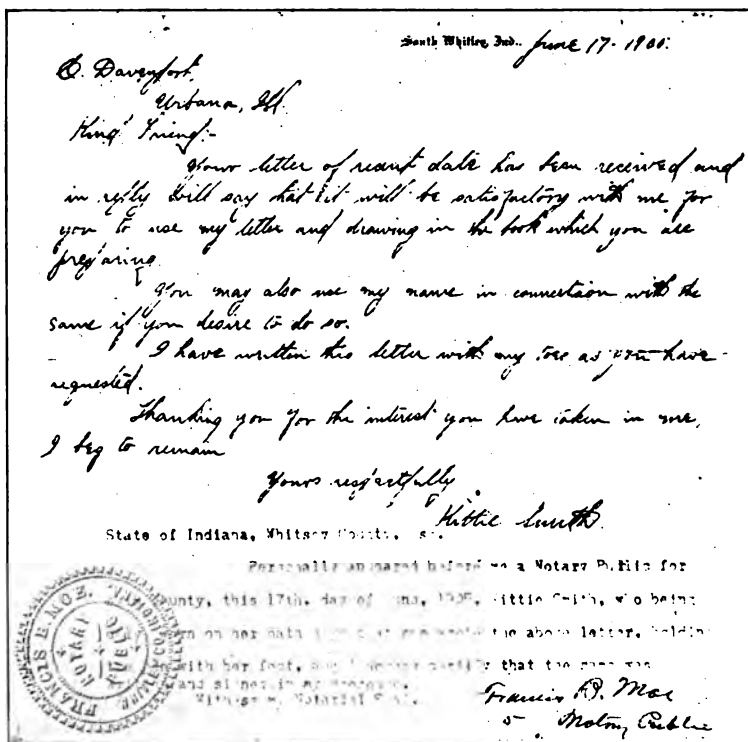 South Whitley, Ind., June 17 - 190
Davenport,
Urbana, Ill.
Kind Friend:-
Your letter of recent date has been received and
in reply will say that it will be satisfactory with me for
you to use my letter and drawing in the book which you are
preparing.
You may also use my name in connection with the
same if you desire to do so.
I have written this letter with my toes as you have
requested.
Thanking you for the interest you have taken in me,
I beg to remain
Yours respectfully
Kittie Smith
State of Indiana, County,
Personally appeared before me a Notary Public for
County, this 17th. day of Smith, who being
on her wrote the above letter, holding
with her foot, that the same was
and signed in my
Notarial
Francis E. Moe
Notary Public
FRANCIS E. MOE.
NOTARY
PUBLIC